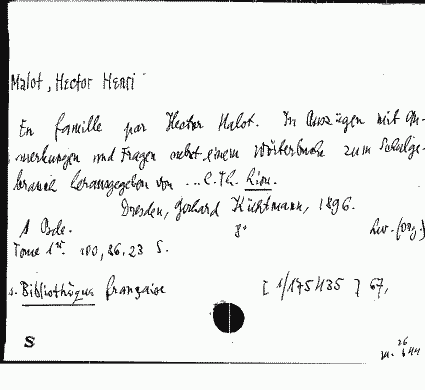 Malot, Hector Henri
En famille par Hector Malot. In Auszügen mit An-
merkungen und Fragen nebst einem Wörterbuche zum Schulge-
brauch herausgegeben von ... C. Th. Lion.
Dresden, Gerhard Kühtmann, 1896.
1 Bde. 8° Lw. (Org.)
Tome 1er. 100, 86, 23 S.
s. Bibliothèque française [ 1/175435 ] 67,
S
26